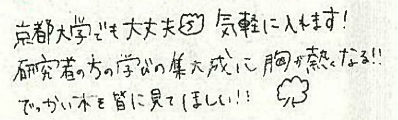 京都大学でも大丈夫 気軽に入れます!
研究者の方の学びの集大成に胸が熱くなる!!
でっかい木を皆に見てほしい!!